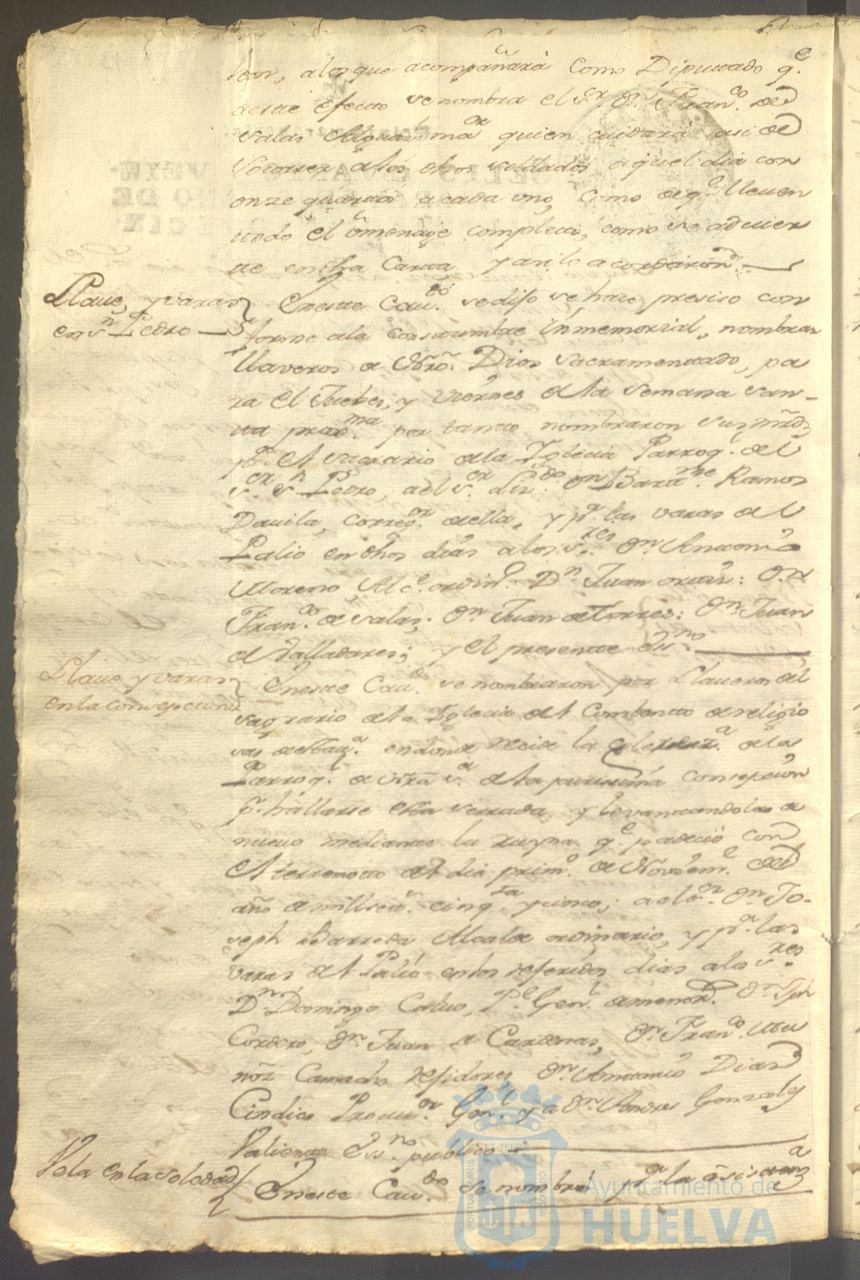 leon, a los que acompañará como Diputado q.e
a este efecto se nombra el s.r d.n Fran.co de
Salas Alguasil ma.or quien cuidará asi de
socorrer a los dhos soldados aquel dia con
onze quartos a cada uno, como de q.e lleven
todo el omenaje completo, como se advier
te en dha Carta y asi lo acordaron
Llave, y varas
en s.n Pedro
En este Cav.do se dijo se hace presiso con
forme a la constumbre inmemorial, nombrar
llaveros de Ntro. Dios Sacramentado, pa
ra el Juebes, y Viernes de la Semana San-
ta prox.ma por tanto nombraron sus mrds
p.a el Sacrario de la Iglecia Parroq. de el
s.or s.n Pedro, a el s.or Liz.do d.n Bar.me Ramos
Davila, correg.or de ella, y p.a las varas de el
Palio en dhos dias a los s.res d.n Antonio
Moreno, Alc.e ordin.o D.n Juan ortiz: d.n
Fran.co de Salas: d.n Juan de Torres: d.n Juan
de Valladares; y el presente Ss.no
Llave y varas
en la consepcion
En este Cav.do se nombraron por Llaveros del
sagrario de la Iglecia del Combento de religio
sas de
en donde recide la
de la
Parroq. de ntra s.a de la purissima Consepcion
p.r hallarse esta serrada, y levantandola de
nuevo mediante la ruyna q.e padeció con
el terremoto del dia prim.o de Noviem.e del
año de mill setec.s cinq.ta y cinco; a el s.or d.n Jo-
seph Barreda Alcalde ordinario, y p.a las
varas del Palio en los referidos dias a los s.res
D.n Domingo Calvo, P.e Gen.l de menor.s d.n Jph
Cordero, d.n Juan de Cardenas, d.n Fran.co Mu
ñoz Camacho rejidores d.n Antonio Dias
Cindico Procur.or Gen.l y a d.n Andres Gonzales
Valiente Ess.no publico
Vela en la soledad
En este Cav.do se nombró p.a la asistenz.a
Ayuntamiento de
HUELVA